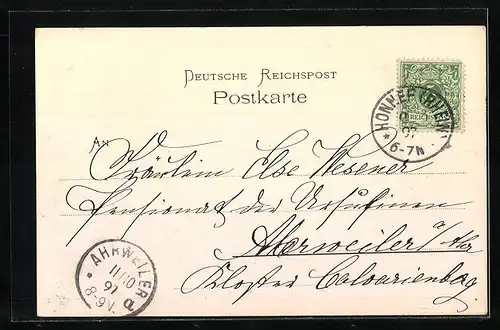 DEUTSCHE REICHSPOST
Postkarte
HONNEF (RHEIN)
97
6-7N
REICHS
AN
Fräulein Else Wesener
Pensionat der Ursulinen
Ahrweiler a/ Ahr
Kloster Calvarienberg
AHRWEILER
11/10
97
8-9V.
D